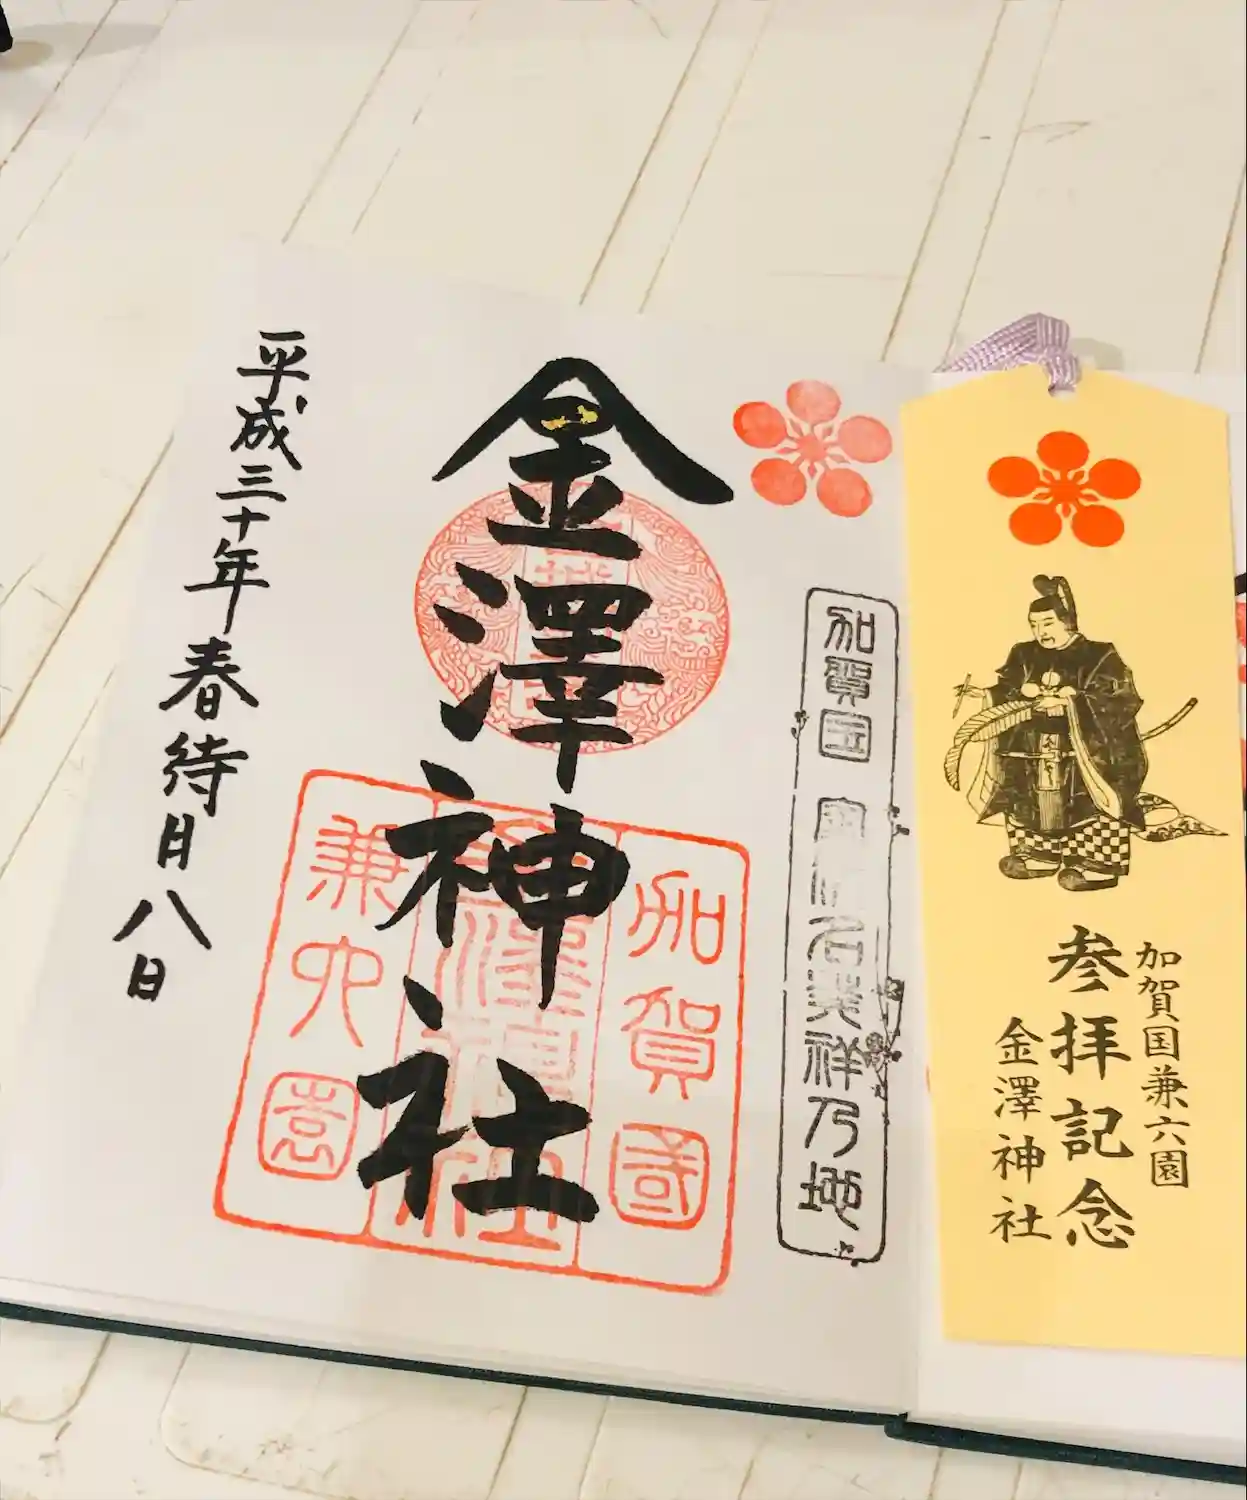 加賀国兼六園
参拝記念
金澤神社
加賀国
名発祥乃地
金澤神社
加賀國
兼六園
平成三十年春待月八日